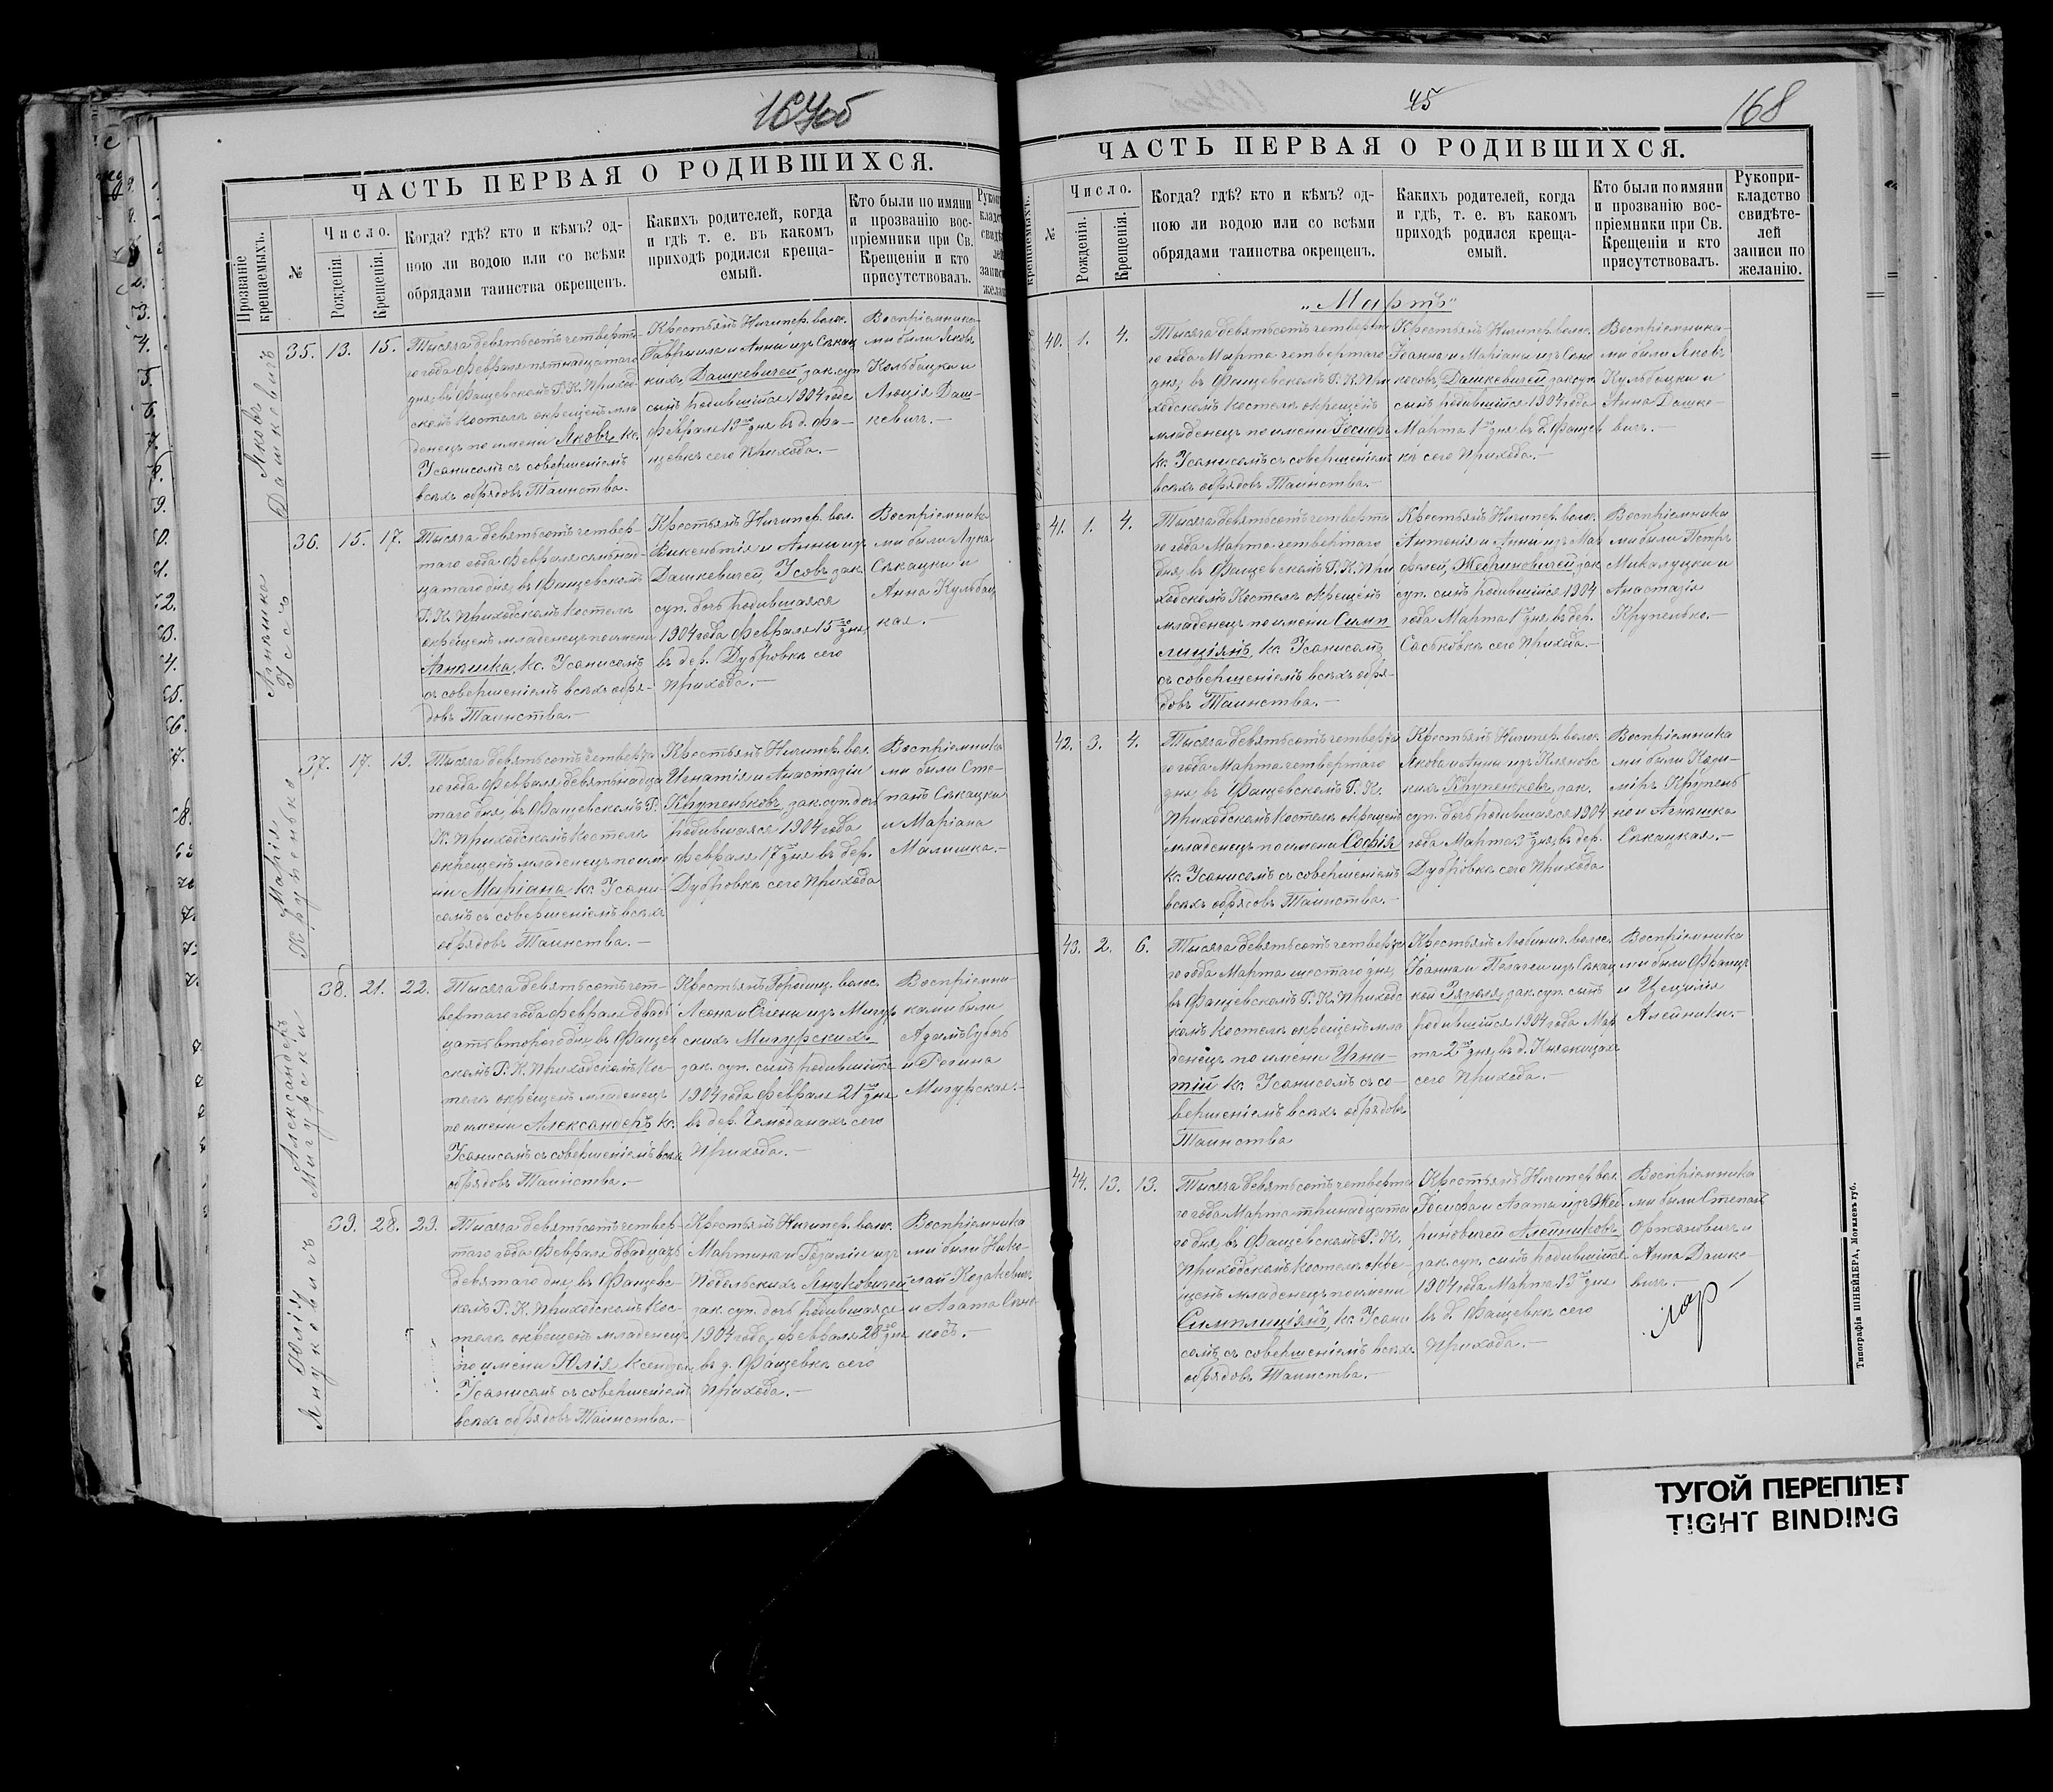 167об
ЧАСТЬ ПЕРВАЯ О РОДИВШИХСЯ.
Прозваніе крещаемыхъ.
№
Число.
Рожденія.
Крещенія.
Когда? гдѣ? кто и кѣмъ? од-
ною ли водою или со всѣми
обрядами таинства окрещенъ.
Какихъ родителей, когда
и гдѣ т. е. въ какомъ
приходѣ родился креща-
емый.
Кто были по имяни
и прозванію вос-
пріемники при Св.
Крещеніи и кто
присутствовалъ.
Яковъ
Дашкевичъ
35. 13. 15.
Тысяча девятьсотъ четверта-
го года Февраля пятнадцатаго
дня, въ Фащевскомъ Р. К. Приход-
скомъ Костелѣ окрещенъ мла-
денецъ по имени Яковъ, кс.
Усанисомъ съ совершеніемъ
всѣхъ обрядовъ Таинства.
Крестьянъ Ничипер. волос.
Гавріила и Анны изъ Сѣкац
кихъ, Дашкевичей, зак. суп.
сынъ родившійся 1904 года
Февраля 13го дня въ д. Фа-
щевкѣ сего Прихода.—
Воспріемника-
ми были Яковъ
Кольбацки и
Люція Даш-
кевичъ.—
Агнѣшка
Усъ
36. 15. 17.
Тысяча девятьсотъ четвер-
таго года Февраля семнад-
цатаго дня, въ Фащевскомъ
Р. К. Приходскомъ Костелѣ
окрещенъ младенецъ по имени
Агнѣшка, кс. Усанисомъ
съ совершеніемъ всѣхъ обря-
довъ Таинства.—
Крестьянъ Ничипер. вол.
Викентія и Анны изъ
Дашкевичей, Усовъ зак.
суп. дочь родившаяся
1904 года Февраля 15го дня,
въ дер. Дубровкѣ сего
Прихода.—
Воспріемника
ми были Лука
Сѣкацки и
Анна Кульбац
кая.—
Марія
Крупенько
37. 17. 19.
Тысяча девятьсотъ четверта
го года Февраля девятнадца
таго дня, въ Фащевскомъ Р.
К. Приходскомъ Костелѣ
окрещенъ младенецъ по име
ни Маріана кс. Усани-
сомъ съ совершеніемъ всѣхъ
обрядовъ Таинства.—
Крестьянъ Ничипер. вол.
Игнатія и Анастазіи
Крупеньковъ, зак. суп. дочь
родившаяся 1904 года
Февраля 17го дня въ дер.
Дубровкѣ сего Прихода
Воспріемника
ми были Сте-
панъ Сѣкацки
и Маріана
Малишка.—
Александеръ
Мигурски
38. 21. 22.
Тысяча девятьсотъ чет-
вертаго года Февраля двад
цать второго дня, въ Фащев
скомъ Р. К. Приходскомъ Кос-
телѣ окрещенъ младенецъ
по имени Александеръ кс.
Усанисомъ съ совершеніемъ всѣхъ
обрядовъ Таинства.—
Крестьянъ Горошц. волос.
Леона и Евгени изъ Мигур
скихъ Мигурскихъ
зак. суп. сынъ родившійся
1904 года Февраля 21го дня
въ дер. Чемоданахъ сего
Прихода.—
Воспріемни-
ками были
Адамъ Суботь
и Регина
Мигурская.—
Юлія
Януковичъ
39. 28. 29.
Тысяча девятьсотъ четвер-
таго года Февраля двадцать
девятаго дня, въ Фащевс-
комъ Р. К. Приходскомъ Кос-
телѣ окрещенъ младенецъ
по имени Юлія Ксендзомъ
Усанисомъ съ совершеніемъ
всѣхъ обрядовъ Таинства.—
Крестьянъ Ничипер. волос.
Мартина и Розаліи изъ
Подольскихъ Януковичей
зак. суп. дочь родившаяся
1904 года, Февраля 28го дня
въ д. Фащевкѣ сего
Прихода.—
Воспріемника
ми были Нико-
лай Козакевичъ
и Агата Сено-
косъ.—
45
168
ЧАСТЬ ПЕРВАЯ О РОДИВШИХСЯ.
крещаемыхъ.
№
Число.
Рожденія.
Крещенія.
Когда? гдѣ? кто и кѣмъ? од-
ною ли водою или со всѣми
обрядами таинства окрещенъ.
Какихъ родителей, когда
и гдѣ, т. е. въ какомъ
приходѣ родился креща-
емый.
Кто были по имяни
и прозванію вос-
пріемники при Св.
Крещеніи и кто
присутствовалъ.
Рукопри-
кладство
свидѣте-
лей
записи по
желанію.
„Мартъ"
40. 1. 4.
Тысяча девятьсотъ четверта
го года Марта четвертаго
дня, въ Фащевскомъ Р. К. При
ходскомъ Костелѣ окрещенъ
младенецъ по имени Іосифъ
кс. Усанисомъ съ совершеніемъ
всѣхъ обрядовъ Таинства.—
Крестьянъ Ничипер. волос.
Іоанна и Маріаны изъ Сено
косовъ, Дашкевичей зак. суп.
сынъ родившійся 1904 года
Марта 1го дня, въ д. Фащев
кѣ сего Прихода.—
Воспріемника-
ми были Яковъ
Кульбацки и
Анна Дашке-
вичъ.—
41. 1. 4.
Тысяча девятьсотъ четверта
го года Марта четвертаго
дня, въ Фащевскомъ Р. К. При
ходскомъ Костелѣ окрещенъ
младенецъ по имени Симп
лиціянъ, кс. Усанисомъ
съ совершеніемъ всѣхъ обря-
довъ Таинства.—
Крестьянъ Ничипер. волос.
Антонія и Анны изъ Мар
фелей, Жебриновичей, зак.
суп. сынъ родившійся 1904
года Марта 1го дня въ дер.
Саськовкѣ сего Прихода.—
Воспріемника
ми были Петръ
Микалуцки и
Анастазія
Крупенько.—
42. 3. 4.
Тысяча девятьсотъ четверта
го года Марта четвертаго
дня, въ Фащевскомъ Р. К.
Приходскомъ Костелѣ окрещенъ
младенецъ по имени Софія
кс. Усанисомъ съ совершеніемъ
всѣхъ обрядовъ Таинства.—
Крестьянъ Ничипер. волос.
Якова и Анны изъ Кляновс
кихъ Крупеньковъ, зак.
суп. дочь родившаяся 1904
года Марта 3го дня, въ дер.
Дубровкѣ сего Прихода
Воспріемника
ми были Кази-
міръ Крупень
ко и Агнѣшка
Сѣкацкая.—
43. 2. 6.
Тысяча девятьсотъ четверта
го года Марта шестаго дня,
въ Фащевскомъ Р. К. Приходс
комъ Костелѣ окрещенъ мла
денецъ по имени Игна-
тій кс. Усанисомъ съ со-
вершеніемъ всѣхъ обрядовъ
Таинства
Крестьянъ Любинич. волос.
Іоанна и Пелагеи изъ Сѣкац
кой Зязюля, зак. суп. сынъ
родившійся 1904 года Мар
та 2го дня, въ д. Княжицахъ
сего Прихода.—
Воспріемника
ми были Францъ
и Цецилія
Алейники.—
44. 13. 13.
Тысяча девятьсотъ четверта
го года Марта тринадцата
го дня, въ Фащевскомъ Р. К.
Приходскомъ Костелѣ окре-
щенъ младенецъ по имени
Симплиціянъ, кс. Усани
сомъ съ совершеніемъ всѣхъ
обрядовъ Таинства.—
Крестьянъ Ничипер. вол.
Іосифа и Агаты изъ Жеб
риновичей Алейниковъ,
зак. суп. сынъ родившійся
1904 года Марта 13го дня
въ д. Фащевкѣ сего
Прихода.—
Воспріемника
ми были Степанъ
Фржановичъ и
Анна Дашке-
вичъ.—
Типографія ШНЕЙДЕРА, Могилевъ губ.
ТУГОЙ ПЕРЕПЛЕТ
TIGHT BINDING